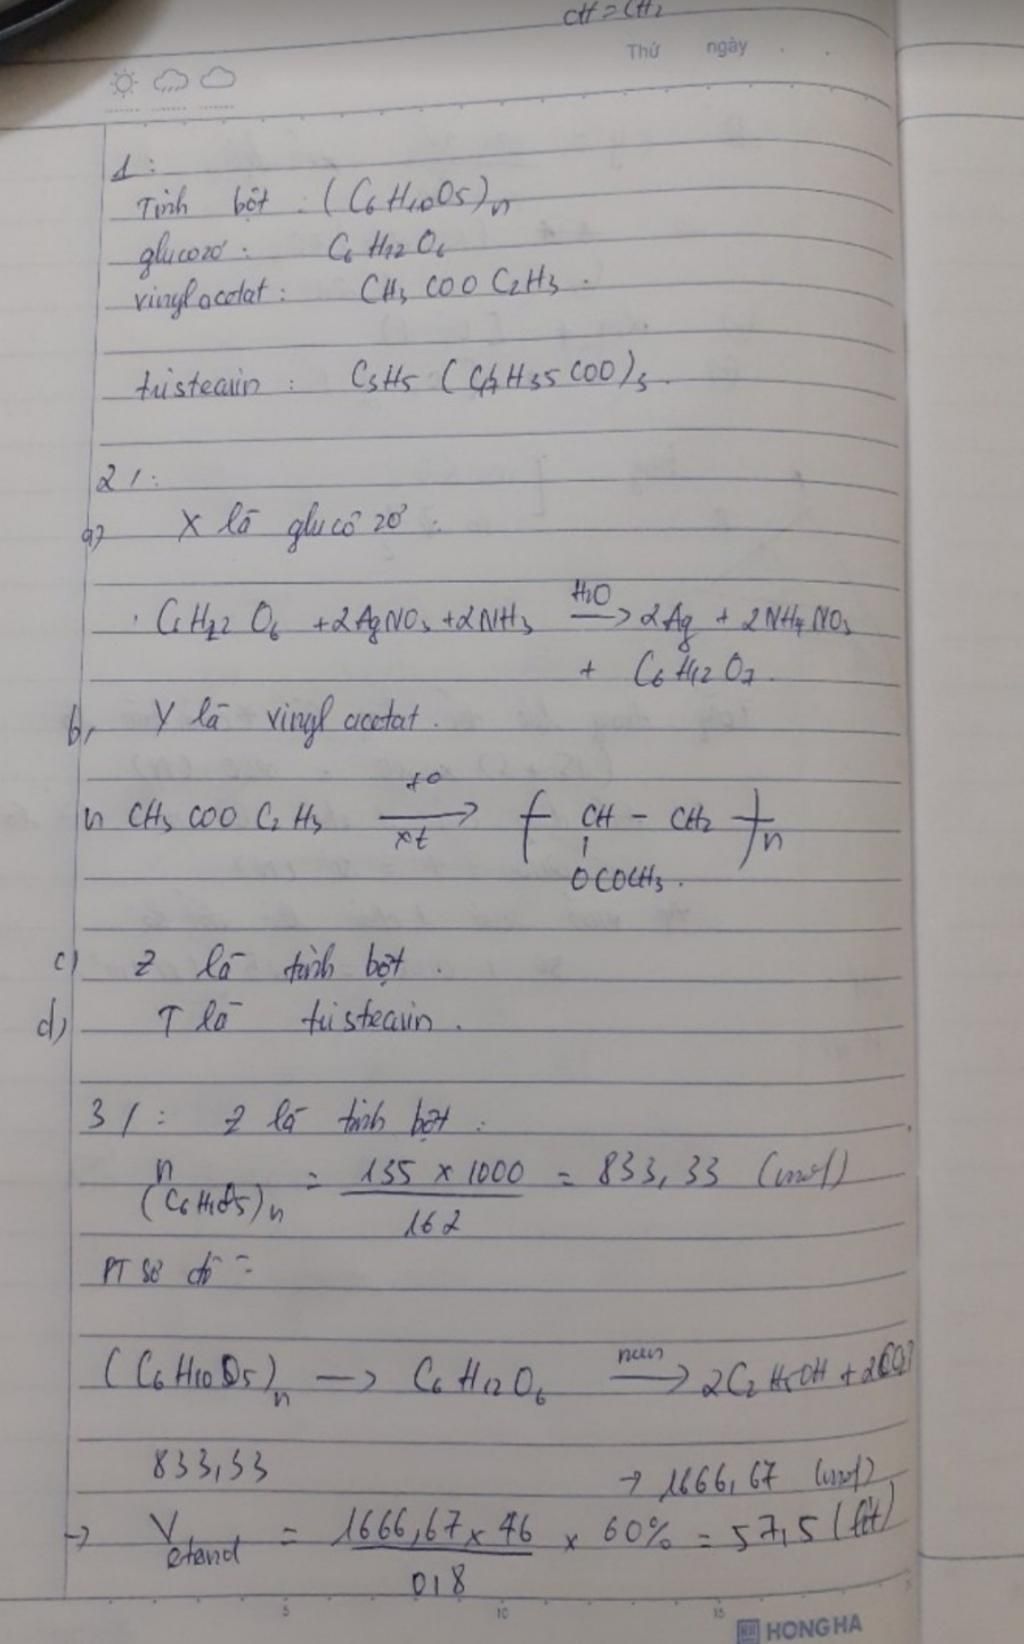 CH=CH2
Thứ ngày
1:
Tinh bột : (C6H10O5)n
glucozơ : C6H12O6
vinyl acetat : CH3COOC2H3.
tristearin : C3H5(C17H35COO)3.
2/:
a) X là glucôzơ.
C6H12O6 + 2AgNO3 + 2NH3 H2O → 2Ag + 2NH4NO3
+ C6H12O7.
b, Y là vinyl acetat.
to
n CH3COOC2H3 → ( CH - CH2 )n
xt
OCOCH3.
c) Z là tinh bột.
d) T là tristearin.
3/: Z là tinh bột :
n(C6H10O5)n = 135 x 1000 / 162 = 833,33 (mol)
PT sơ đồ =
(C6H10O5)n → C6H12O6 men → 2C2H5OH + 2CO2
833,33 → 1666,67 (mol)
→ Vetanol = 1666,67 x 46 / 0,8 x 60% = 57,5 (lít)
5 10 15
HONG HA